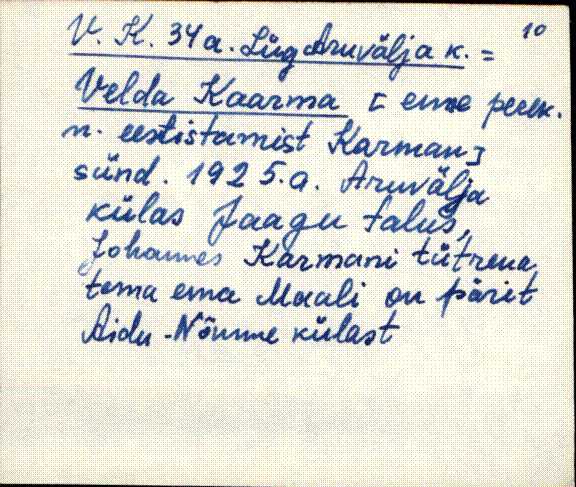 10
V. K. 34 a. Lüg Aruvälja k. =
Velda Kaarma [ enne perek.
n. eestistamist Karman]
sünd. 1925.a. Aruvälja
külas Jaagu talus,
Johannes Karmani tütrena,
tema ema Maali on pärit
Aidu-Nõmme külast